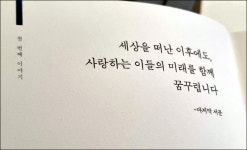 첫 번째 이야기
세상을 떠난 이후에도,
사랑하는 이들의 미래를 함께
꿈꾸럽니다
-마지막 서문